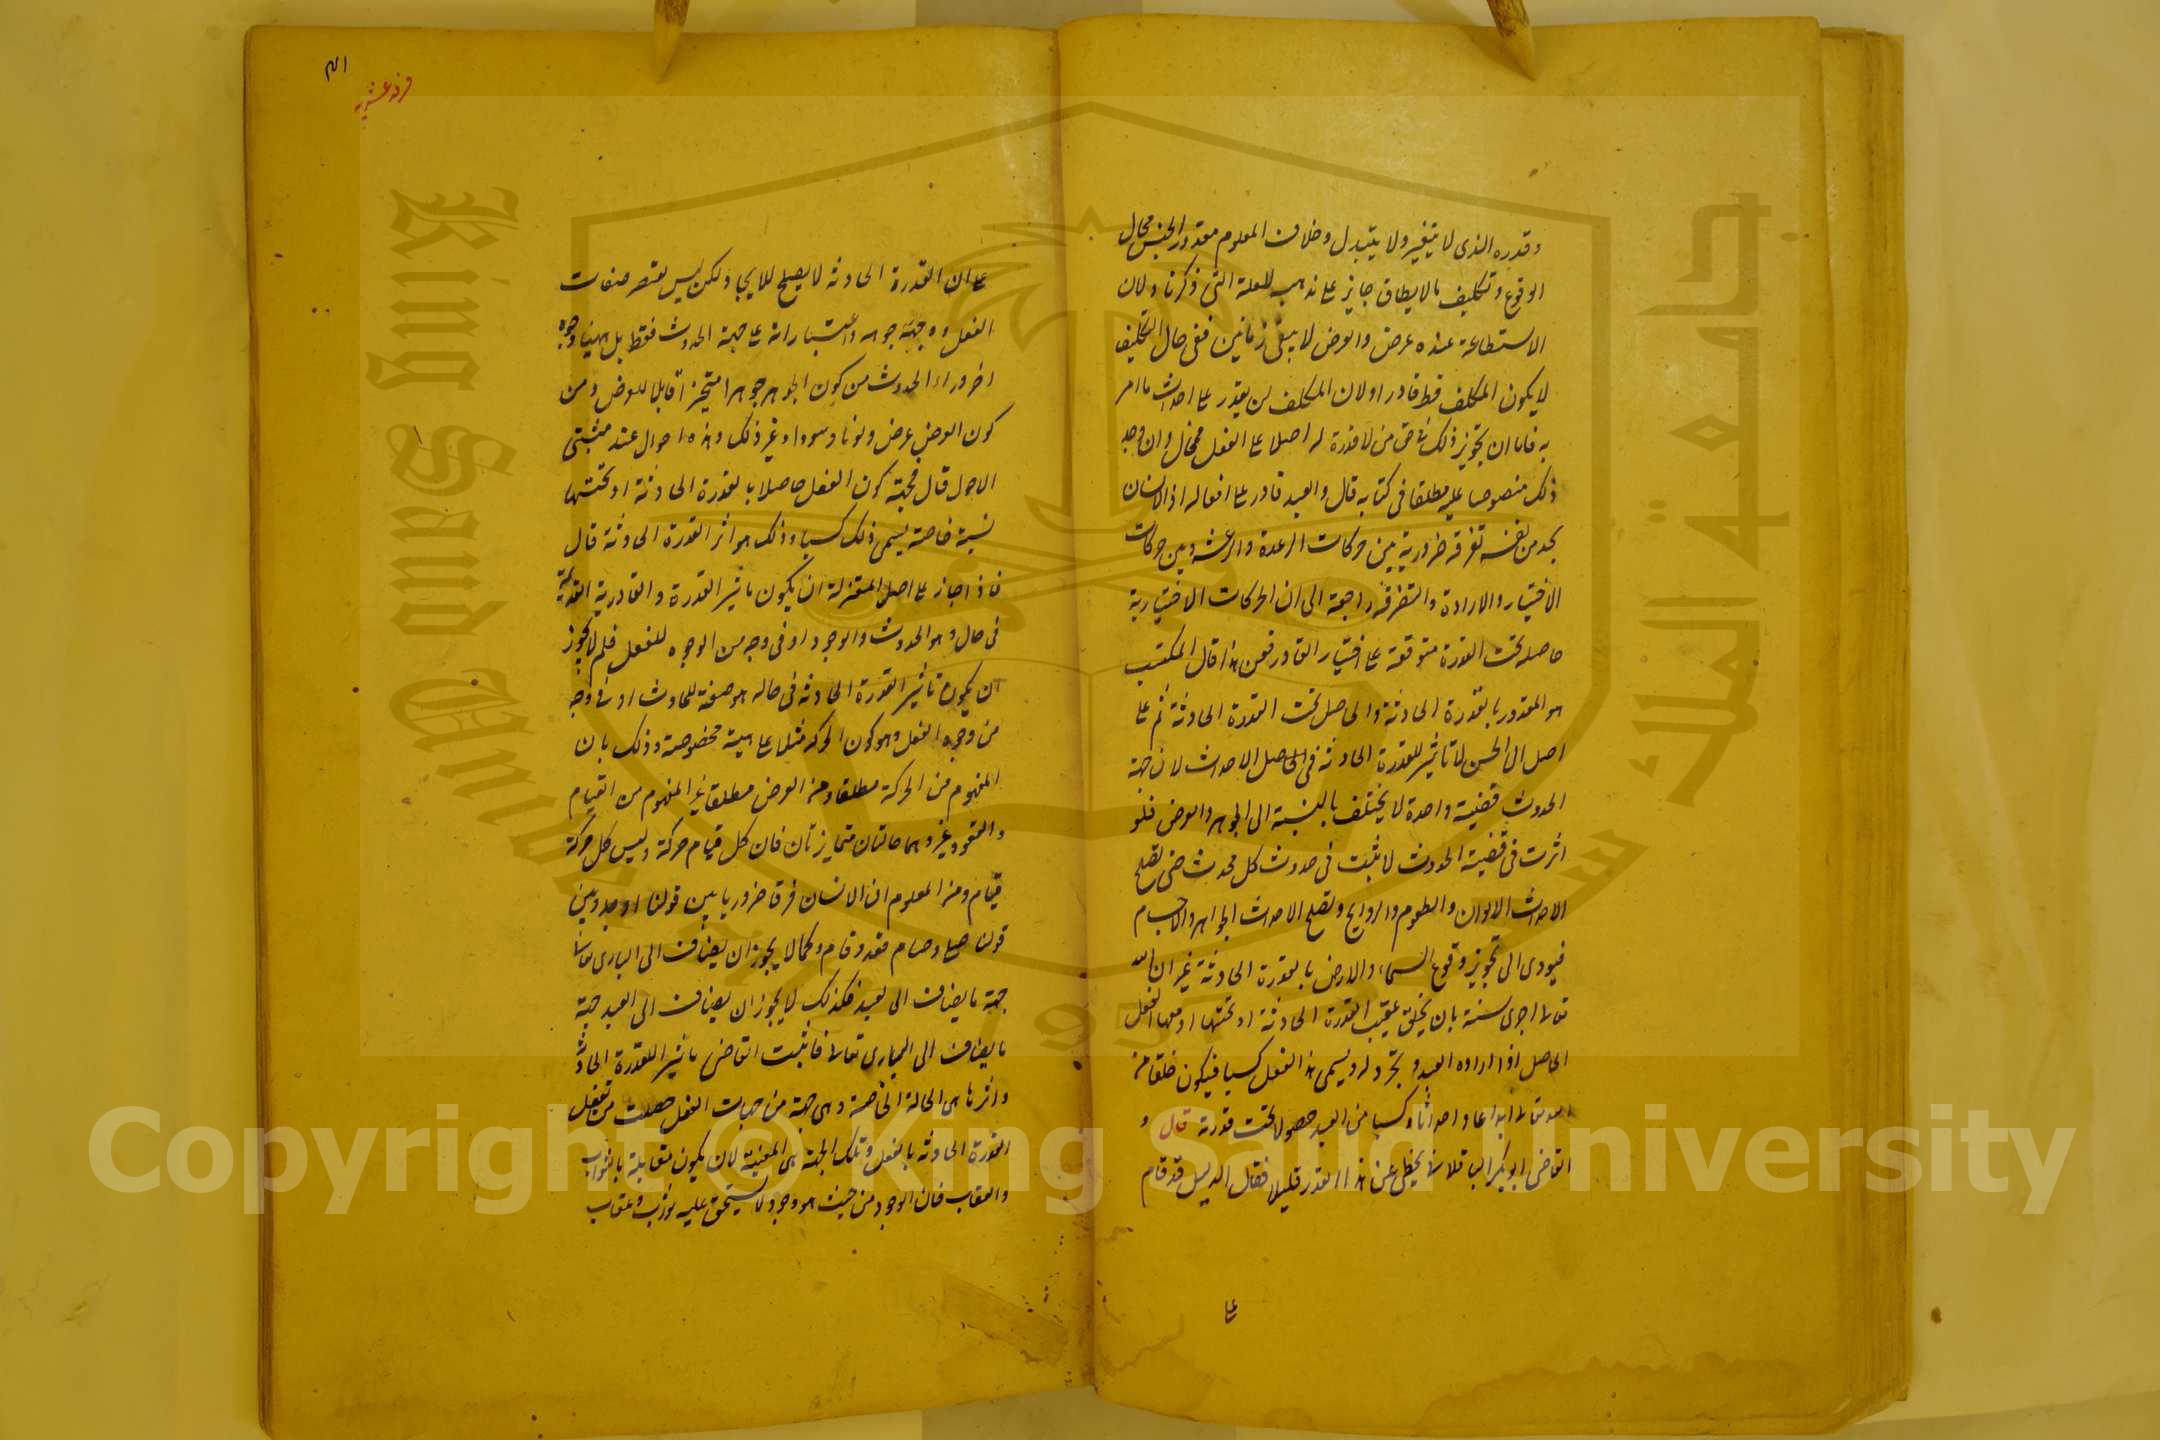 وقدره الذى لا يتغير ولا يتبدل وخلاف المعلوم مقدور الجنس محال
الوقوع وتكليف مالا يطاق جايز على مذهبه للعلة التى ذكرنا ولان
الاستطاعة عنده عرض والعرض لا يبقى زمانين ففى حال التكليف
لا يكون المكلف قط قادرا ولان المكلف لن يقدر على احداث ما امر
به فاما ان يجوز ذلك فى حق من لا قدرة له اصلا على الفعل فمحال وان وجد
ذلك منصوصا عليه مطلقا فى كتابه قال والعبد قادر على افعاله اذ الانسان
يجد من نفسه تفرقة ضرورية بين حركات الرعدة والرعشة وبين حركات
الاختيار والارادة والتفرقة راجعة الى ان الحركات الاختيارية
حاصله تحت القدرة متوقفة على اختيار القادر فعن هذا قال المكتسب
هو المقدور بالقدرة الحادثة والحاصل تحت القدرة الحادثة ثم على
اصل ابى الحسن لا تاثير للقدرة الحادثه فى الاحداث لان جهة
الحدوث قضية واحدة لا يختلف بالنسبة الى الجوهر والعرض فلو
اثرت فى قضية الحدوث لاثبت فى حدوث كل محدث حتى يصلح
الاحداث الالوان والطعوم والروايح وتصلح لاحداث الجواهر والاجسام
فيودى الى تجويز وقوع السماء والارض بالقدرة الحادثة غير ان الله
تعالى اجرى سنته بان يخلق عقيب القدرة الحادثة او تحتها او معها الفعل
الحاصل اذا اراده العبد وتجرد له ويسمى هذا الفعل كسبا فيكون خلقا من
الله تعالى ابداعا و احداثا وكسبا من العبد حصولا تحت قدرته قال و
القاضى ابو بكر الباقلانى تخطى عن هذا القدر قليلا فقال الدليل قد قام
على
١٨١
على ان القدرة الحادثه لا يصلح للايجاد لكن ليس يقتصر صفات
الفعل و وجهة جوهه واعتباراته على جهة الحدوث فقط بل ههنا وجوه
اخر وراء الحدوث من كون الجوهر جوهرا متحيزا قابلا للعرض ومن
كون العرض عرض ولونا وسوادا وغير ذلك وهذه احوال عند مثبتى
الاحوال قال فجهة كون الفعل حاصلا بالقدرة الحادثة او تحتها
نسبة خاصة يسمى ذلك كسبا وذلك هو اثر القدرة الحادثة قال
فاذا جاز على اصل المعتزلة ان يكون تاثير القدرة والقادرية القديمة
فى حال وهو الحدوث والوجود او فى وجه من الوجوه للفعل فلم لا يجوز
ان يكون تاثير القدرة الحادثه فى حاله هو صفة للحادث او فى وجه
من وجوه الفعل وهو كون الحركه مثلا على هيئة مخصوصة وذلك بان
المفهوم من الحركة مطلقا ومن العرض مطلقا غير المفهوم من القيام
والقعود غير وهما حالتان متمايزتان فان كل قيام حركة وليس كل حركة
قيام ومن المعلوم ان الانسان فرقا ضروريا بين قولنا اوجد وبين
قولنا صلى وصام وقعد وقام وكما لا يجوز ان يضاف الى البارى تعالى
جهة ما يضاف الى العبد فكذلك لا يجوز ان يضاف الى العبد جهة
ما يضاف الى البارى تعالى فاثبت القاضى تاثيرا للقدرة الحادثة
واثرها هى الحالة الخاصة وهى جهة من جهات الفعل حصلت من تعلق
القدرة الحادثة بالفعل وتلك الجهة هى المتعينة لان يكون مقابلة بالثواب
والعقاب فان الوجود من حيث هو وجود لا يستحق عليه ثواب وعقاب